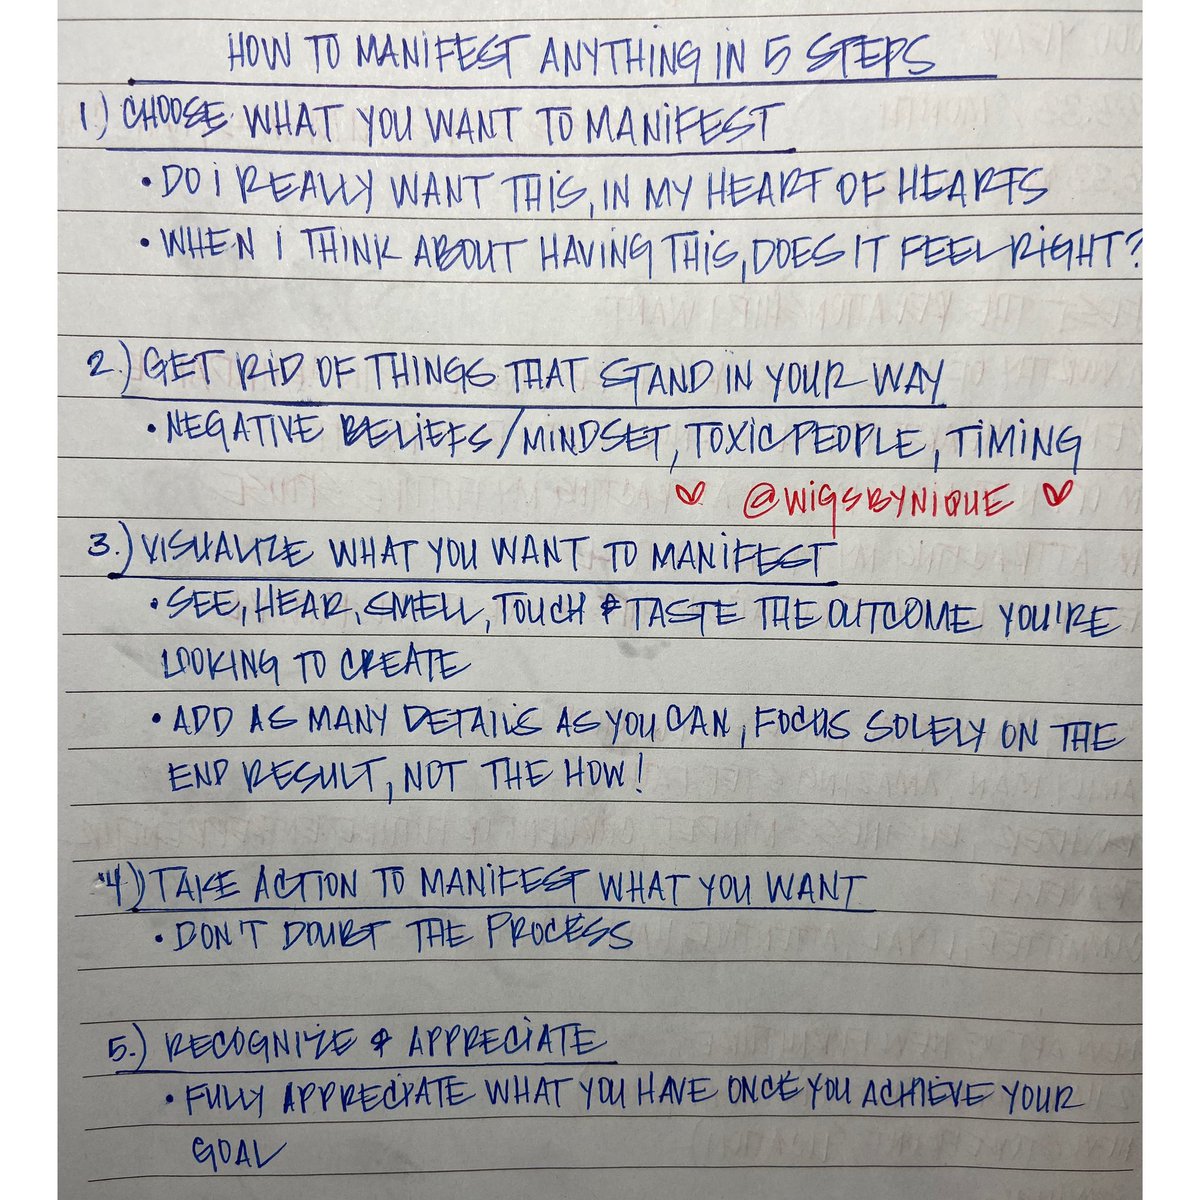 HOW TO MANIFEST ANYTHING IN 5 STEPS
1.) CHOOSE WHAT YOU WANT TO MANIFEST
• DO I REALLY WANT THIS, IN MY HEART OF HEARTS
• WHEN I THINK ABOUT HAVING THIS, DOES IT FEEL RIGHT?
2.) GET RID OF THINGS THAT STAND IN YOUR WAY
• NEGATIVE BELIEFS/MINDSET, TOXIC PEOPLE, TIMING
♡ @WIGSBYNIQUE ♡
3.) VISUALIZE WHAT YOU WANT TO MANIFEST
• SEE, HEAR, SMELL, TOUCH & TASTE THE OUTCOME YOU'RE
LOOKING TO CREATE
• ADD AS MANY DETAILS AS YOU CAN, FOCUS SOLELY ON THE
END RESULT, NOT THE HOW!
4.) TAKE ACTION TO MANIFEST WHAT YOU WANT
• DON'T DOUBT THE PROCESS
5.) RECOGNIZE & APPRECIATE
• FULLY APPRECIATE WHAT YOU HAVE ONCE YOU ACHIEVE YOUR
GOAL